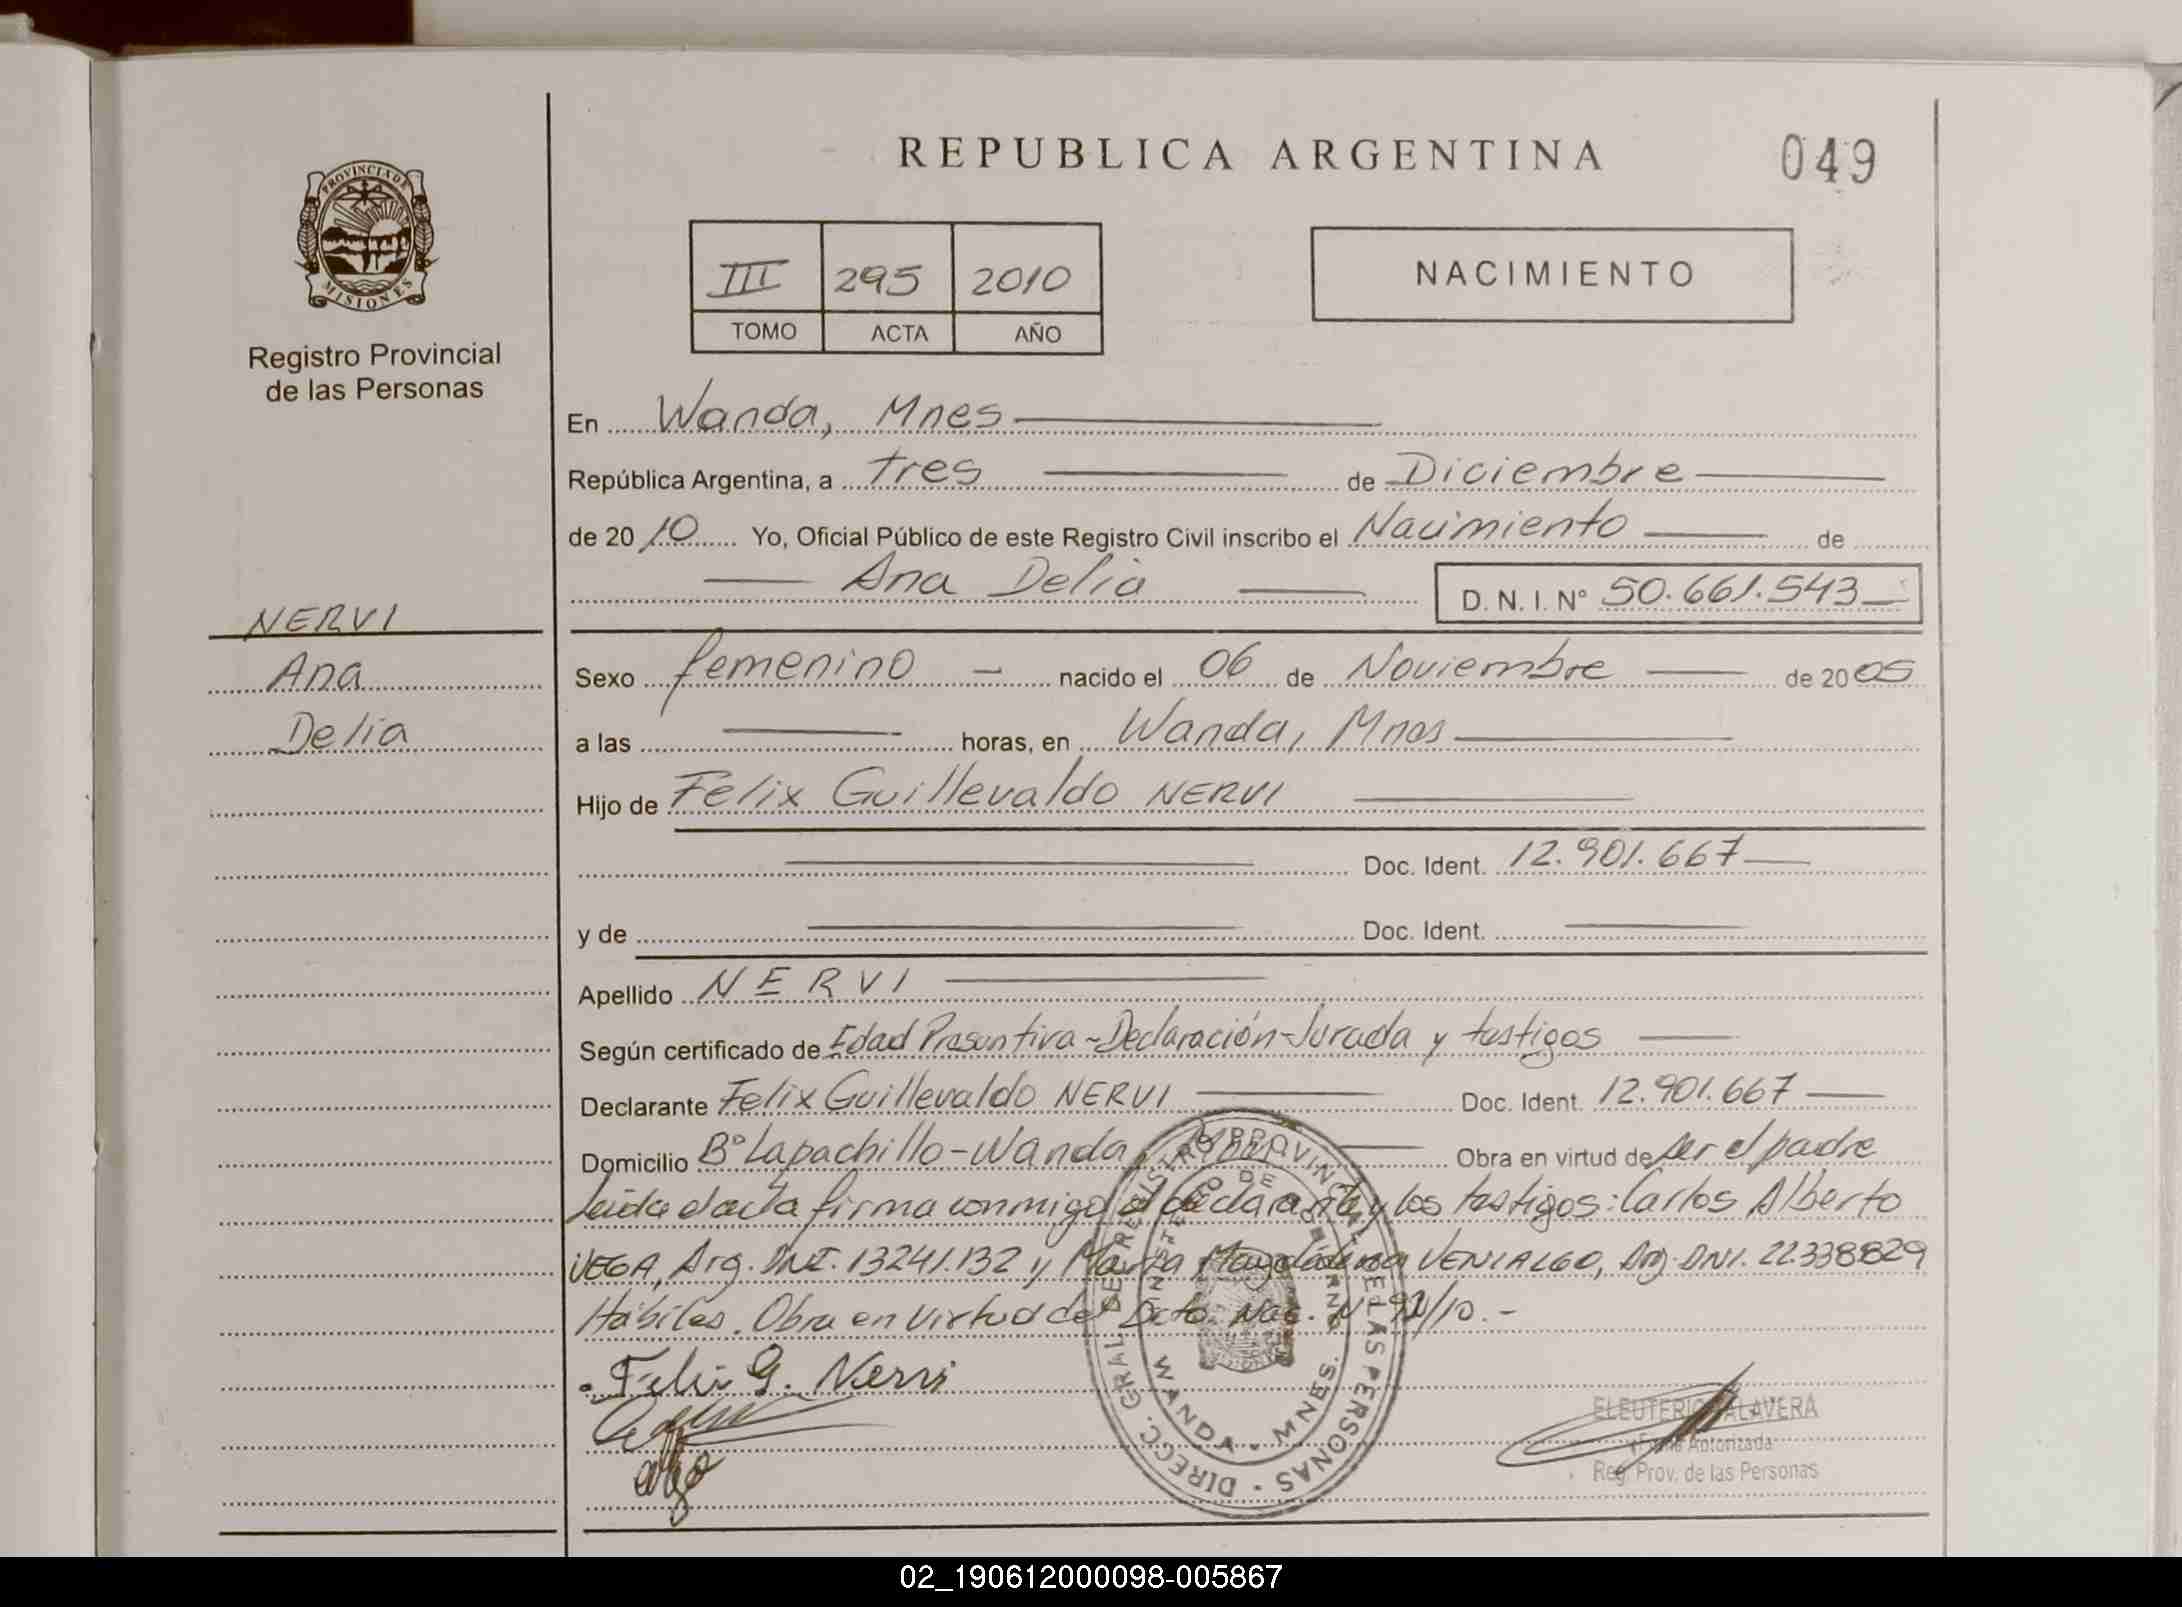 REPUBLICA ARGENTINA
049
PROVINCIA DE MISIONES
Registro Provincial
de las Personas
III 295 2010
TOMO ACTA AÑO
NACIMIENTO
En Wanda, Mnes
República Argentina, a tres de Diciembre
de 2010 Yo, Oficial Público de este Registro Civil inscribo el Nacimiento de
Ana Delia D. N. I. N° 50.661.543
NERVI
Ana
Delia
Sexo femenino nacido el 06 de Noviembre de 2005
a las horas, en Wanda, Mnes
Hijo de Felix Guillevaldo NERVI
Doc. Ident. 12.901.667
y de Doc. Ident.
Apellido NERVI
Según certificado de Edad Presuntiva - Declaración Jurada y testigos
Declarante Felix Guillevaldo NERVI Doc. Ident. 12.901.667
Domicilio B° Lapachillo - Wanda, Mnes Obra en virtud de ser el padre
Leida el acta firma conmigo el declarante y los testigos: Carlos Alberto
VEGA, Arg. DNI. 13241.132 y Magdalena VENIALGO, Arg. DNI. 22.338829
Hábiles. Obra en virtud de Dcto. Nac. N° /10.-
Felix G. Nervi
DIRECC. GRAL. DE REGISTRO PROVINCIAL DE LAS PERSONAS
MINISTERIO DE GOBIERNO
WANDA - MNES.
ELEUTERIO TALAVERA
Firma Autorizada
Reg. Prov. de las Personas
02_190612000098-005867